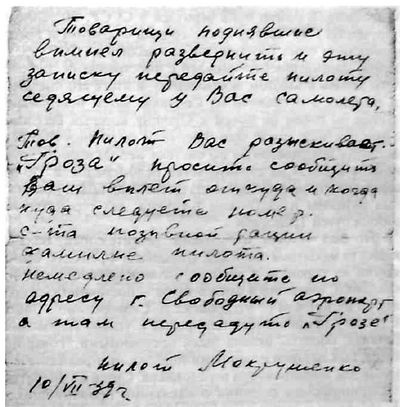 Товарищи поднявшие
вимпел разверните и эту
записку передайте пилоту
седящему у Вас самолета.
Тов. Пилот Вас разыскивает
„Гроза" просит сообщить
Ваш вылет откуда и когда
куда следуете номер.
с-та позывной рации
фамилие пилота.
немедлено сообщите по
адресу г. Свободный аэропорт
а там передадуть „Грозе"
пилот Мокрушенко
10/VII-39 г.